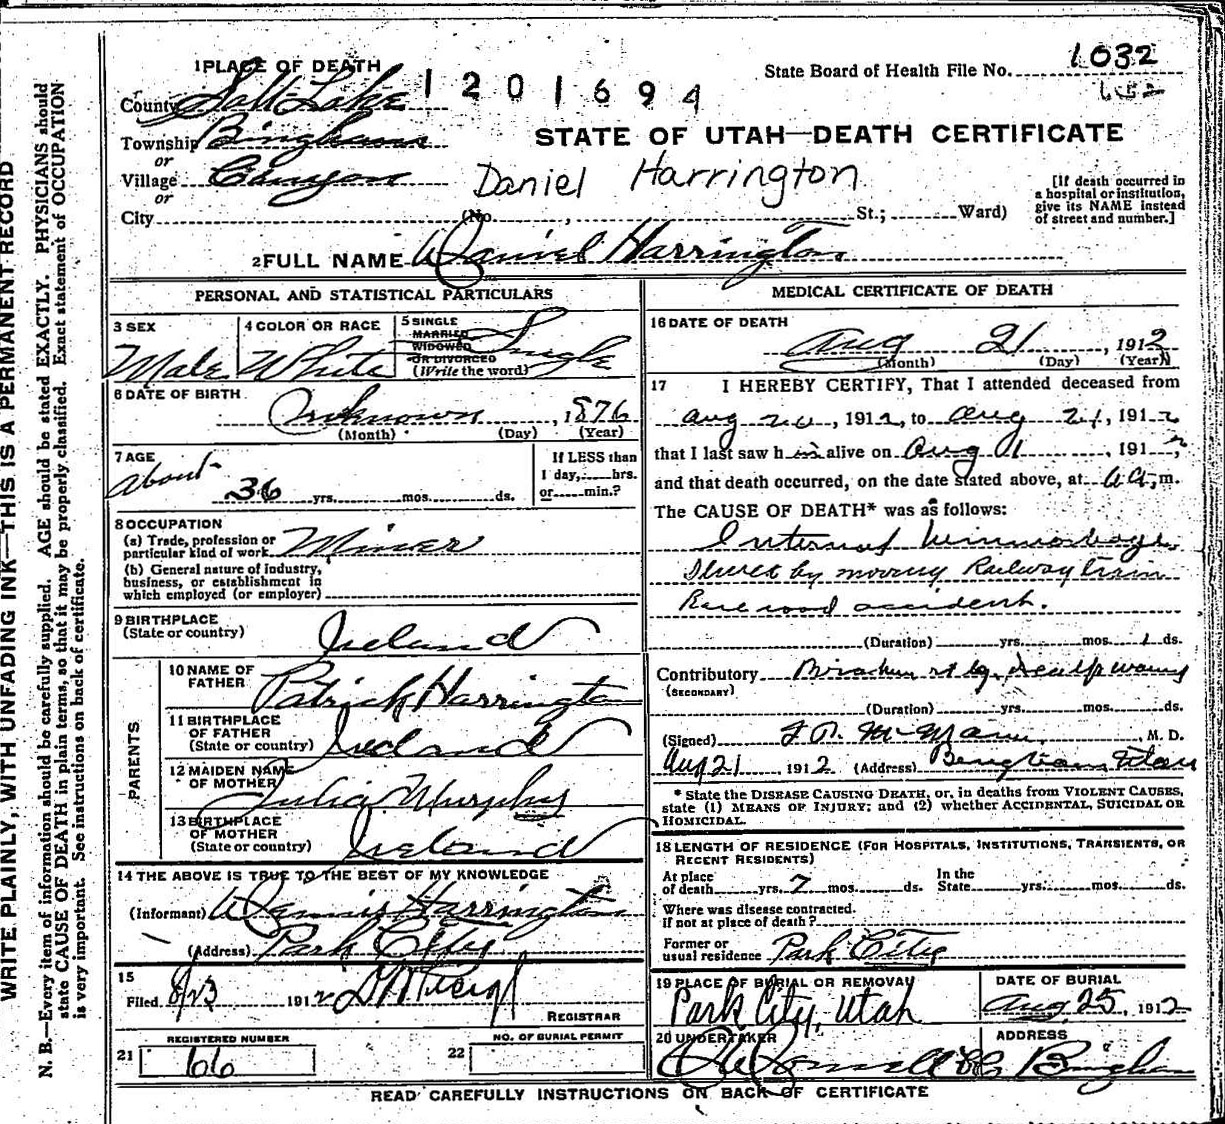 WRITE PLAINLY, WITH UNFADING INK—THIS IS A PERMANENT RECORD
N. B.—Every item of information should be carefully supplied. AGE should be stated EXACTLY. PHYSICIANS should
state CAUSE OF DEATH in plain terms, so that it may be properly classified. Exact statement of OCCUPATION
is very important. See instructions on back of certificate.
1 PLACE OF DEATH
County Salt Lake
1201694
State Board of Health File No. 1032
Township Bingham
or
Village Canyon
or
City
STATE OF UTAH—DEATH CERTIFICATE
Daniel Harrington
(No. , St.; Ward)
[If death occurred in
a hospital or institution,
give its NAME instead
of street and number.]
2 FULL NAME Daniel Harrington
PERSONAL AND STATISTICAL PARTICULARS
3 SEX
Male
4 COLOR OR RACE
White
5 SINGLE
MARRIED
WIDOWED
OR DIVORCED
(Write the word)
Single
6 DATE OF BIRTH
Unknown , 1876
(Month) (Day) (Year)
7 AGE
About 36 yrs. mos. ds.
If LESS than
1 day, hrs.
or min.?
8 OCCUPATION
(a) Trade, profession or
particular kind of work Miner
(b) General nature of industry,
business, or establishment in
which employed (or employer)
9 BIRTHPLACE
(State or country) Ireland
PARENTS
10 NAME OF
FATHER Patrick Harrington
11 BIRTHPLACE
OF FATHER
(State or country) Ireland
12 MAIDEN NAME
OF MOTHER Julia Murphy
13 BIRTHPLACE
OF MOTHER
(State or country) Ireland
14 THE ABOVE IS TRUE TO THE BEST OF MY KNOWLEDGE
(Informant) Dennis Harrington
(Address) Park City
15
Filed 8/23 1912
REGISTRAR
21 REGISTERED NUMBER
66
22 NO. OF BURIAL PERMIT
MEDICAL CERTIFICATE OF DEATH
16 DATE OF DEATH
Aug 21 , 1912
(Month) (Day) (Year)
17 I HEREBY CERTIFY, That I attended deceased from
Aug 20 , 1912, to Aug 21, 1912
that I last saw h im alive on Aug 21 , 191
and that death occurred, on the date stated above, at m.
The CAUSE OF DEATH* was as follows:
Internal hemmorhage
Struck by moving Railway train
Rail road accident.
(Duration) yrs. mos. 1 ds.
Contributory
(SECONDARY)
(Duration) yrs. mos. ds.
(Signed) , M. D.
Aug 21 , 1912 (Address) Bingham Utah
* State the DISEASE CAUSING DEATH, or, in deaths from VIOLENT CAUSES,
state (1) MEANS OF INJURY; and (2) whether ACCIDENTAL, SUICIDAL OR
HOMICIDAL.
18 LENGTH OF RESIDENCE (FOR HOSPITALS, INSTITUTIONS, TRANSIENTS, OR
RECENT RESIDENTS)
At place
of death yrs. 7 mos. ds.
In the
State yrs. mos. ds.
Where was disease contracted.
if not at place of death?
Former or
usual residence Park City
19 PLACE OF BURIAL OR REMOVAL
Park City, Utah
DATE OF BURIAL
Aug 25, 1912
20 UNDERTAKER
ADDRESS
Bingham
READ CAREFULLY INSTRUCTIONS ON BACK OF CERTIFICATE